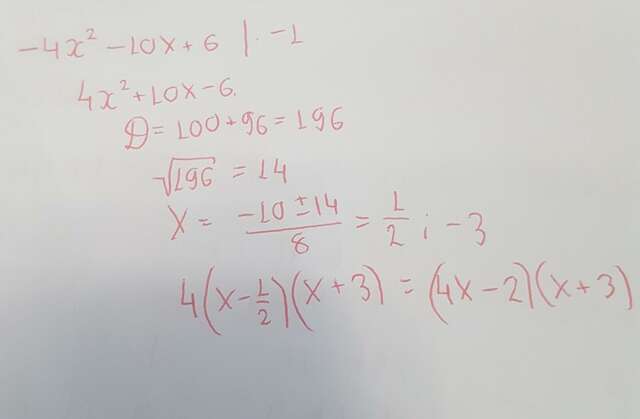 -4x² -10x + 6 | · -1
4x² + 10x - 6.
D = 100 + 96 = 196
√196 = 14
X = (-10 ± 14)/8 = 1/2 ; -3
4(x - 1/2)(x + 3) = (4x - 2)(x + 3)